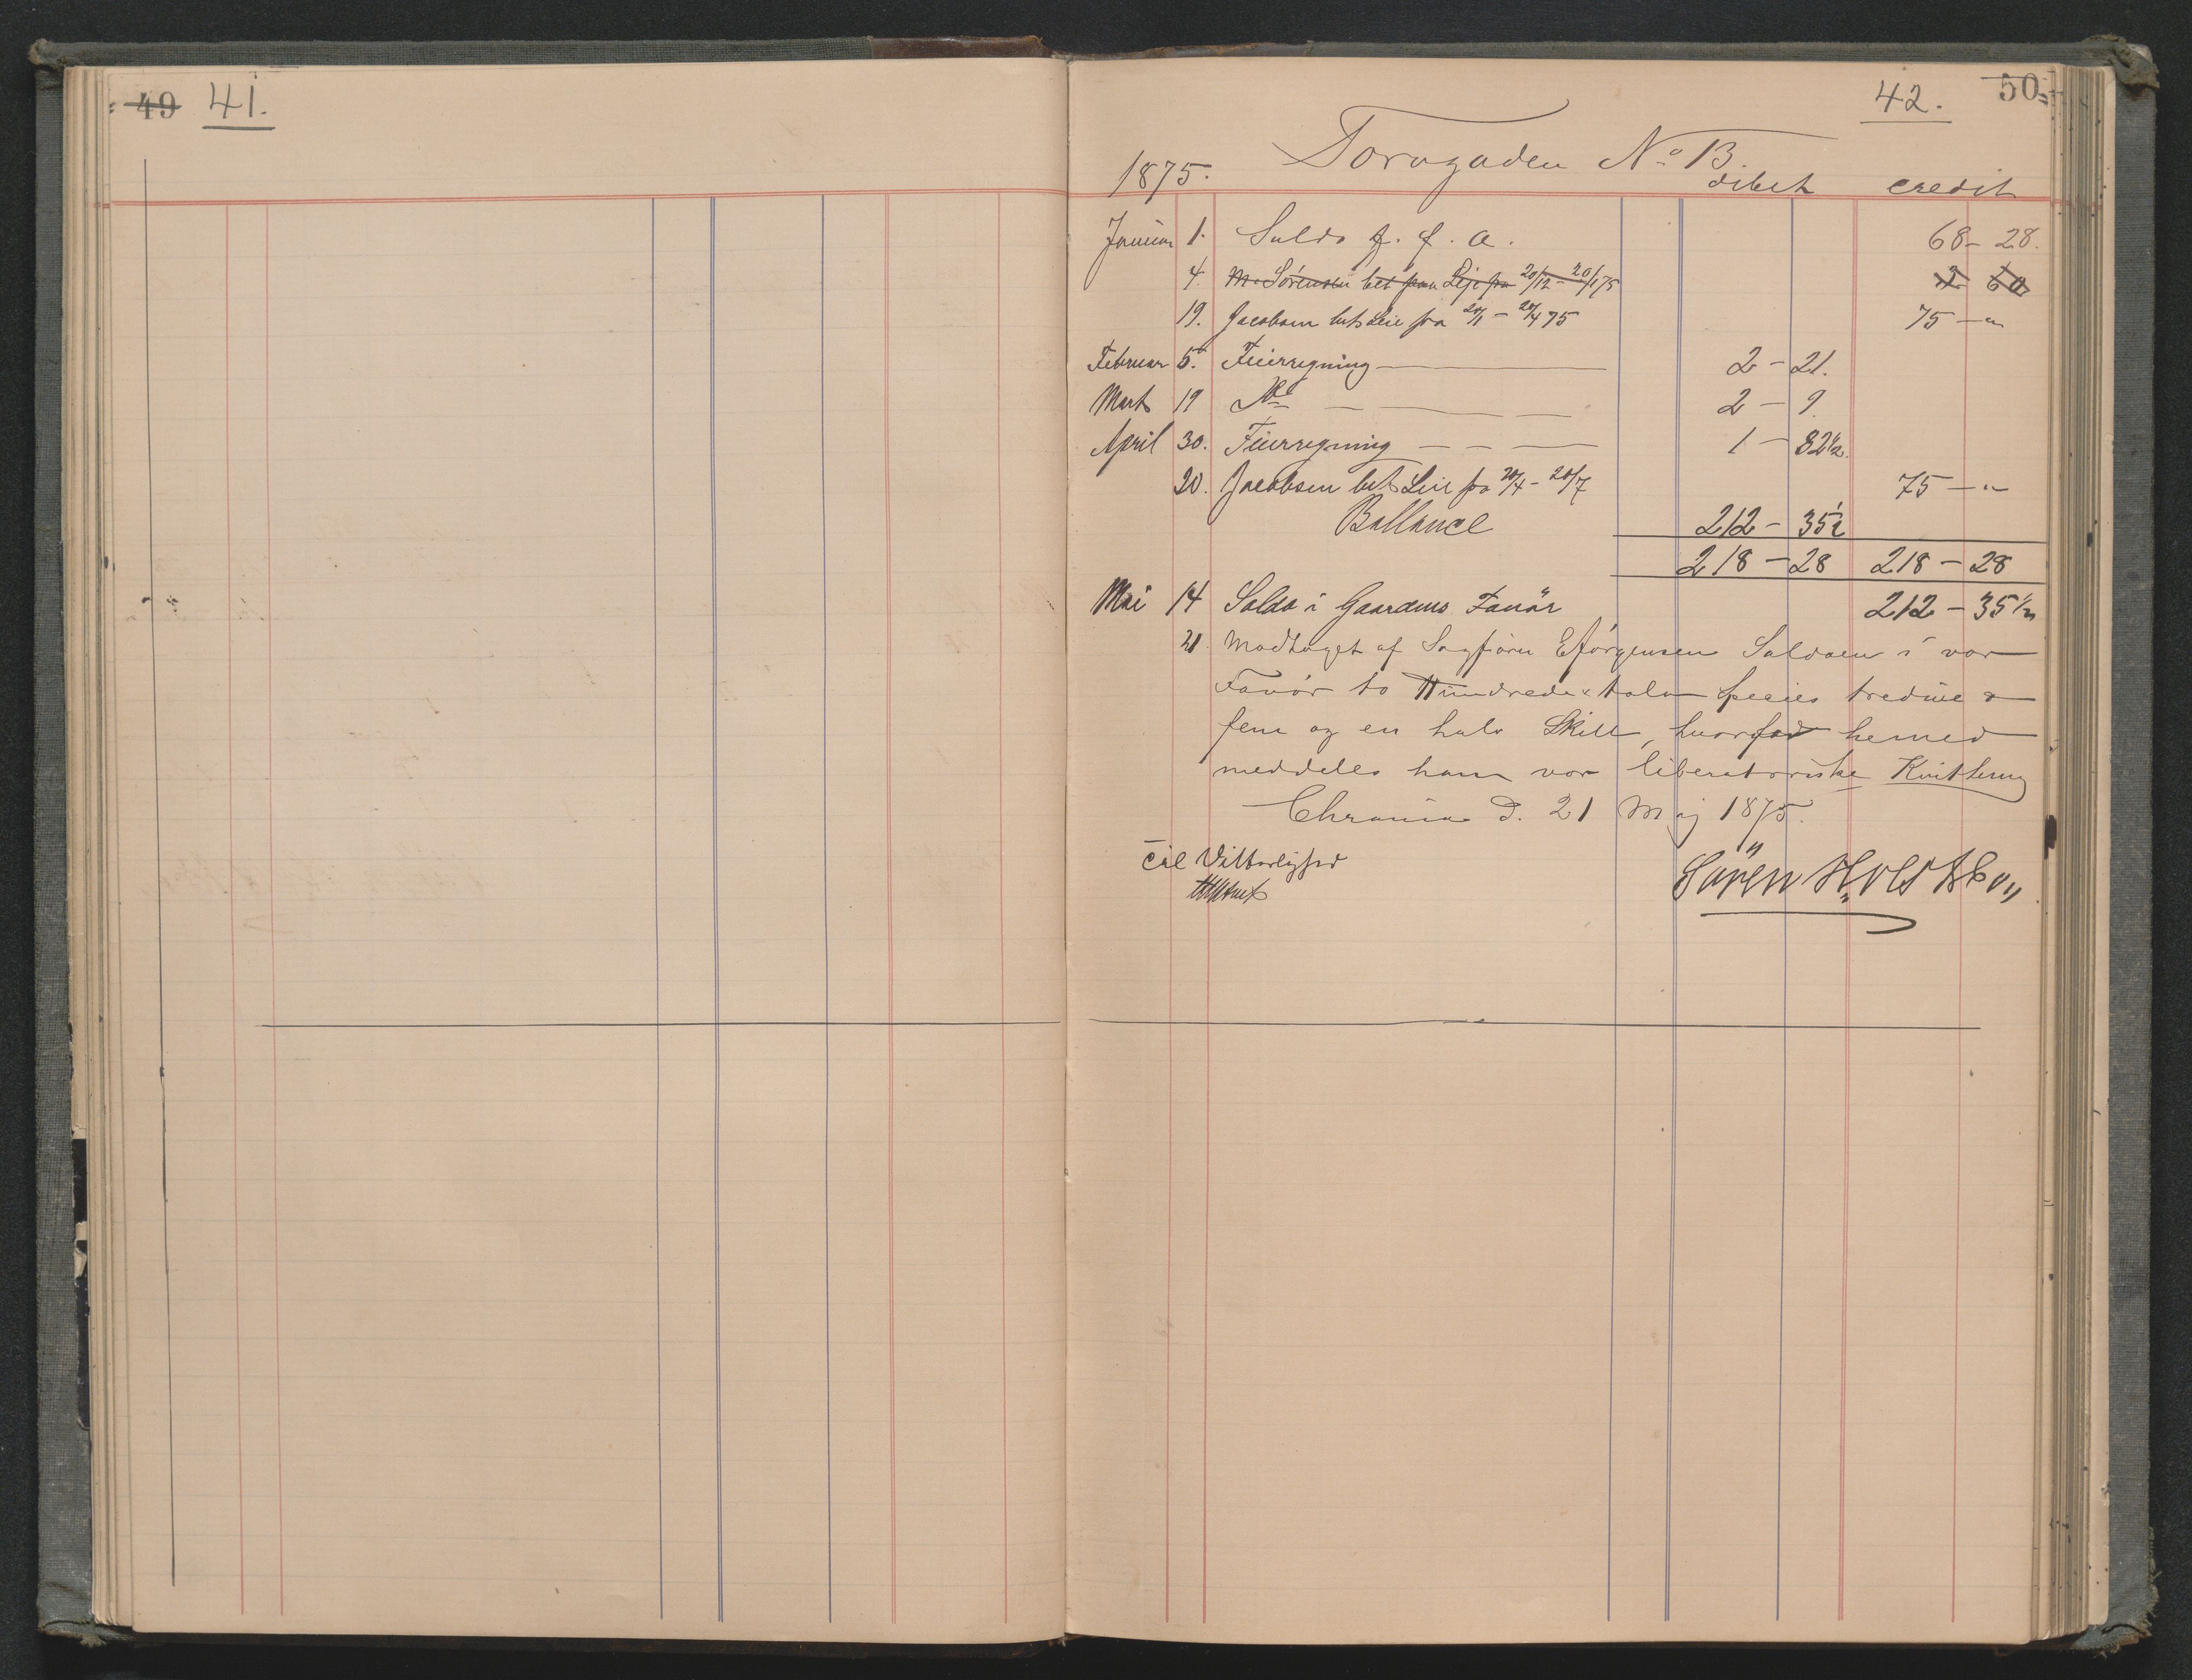 49 41.
42. 50
Torvgaden No 13.
1875. debet credit
Januar 1. Saldo f. f. A. 68 - 28.
4. M. Sörensen bet paa Leje fra 20/12 - 20/1 75 2 60
19. Jacobsen bet Leie fra 20/1 - 20/4 75 75 - "
Februar 5. Feierregning 2 - 21.
Marts 19 Do 2 - 9.
April 30. Feierregning 1 - 82½.
30. Jacobsen bet Leie fra 20/4 - 20/7 75 - "
Ballance 212 - 35½
218 - 28 218 - 28
Mai 14 Saldo i Gaardens Favör 212 - 35½
21. Modtaget af Sagförer E Jörgensen Saldoen i vor
Favör to Hundrede & tolv Species tredive &
fem og en halv Skill, hvorfor hermed
meddeles ham vor liberatoriske Kvittering
Chrania d. 21 Maj 1875.
Til Vitterlighed
Sören